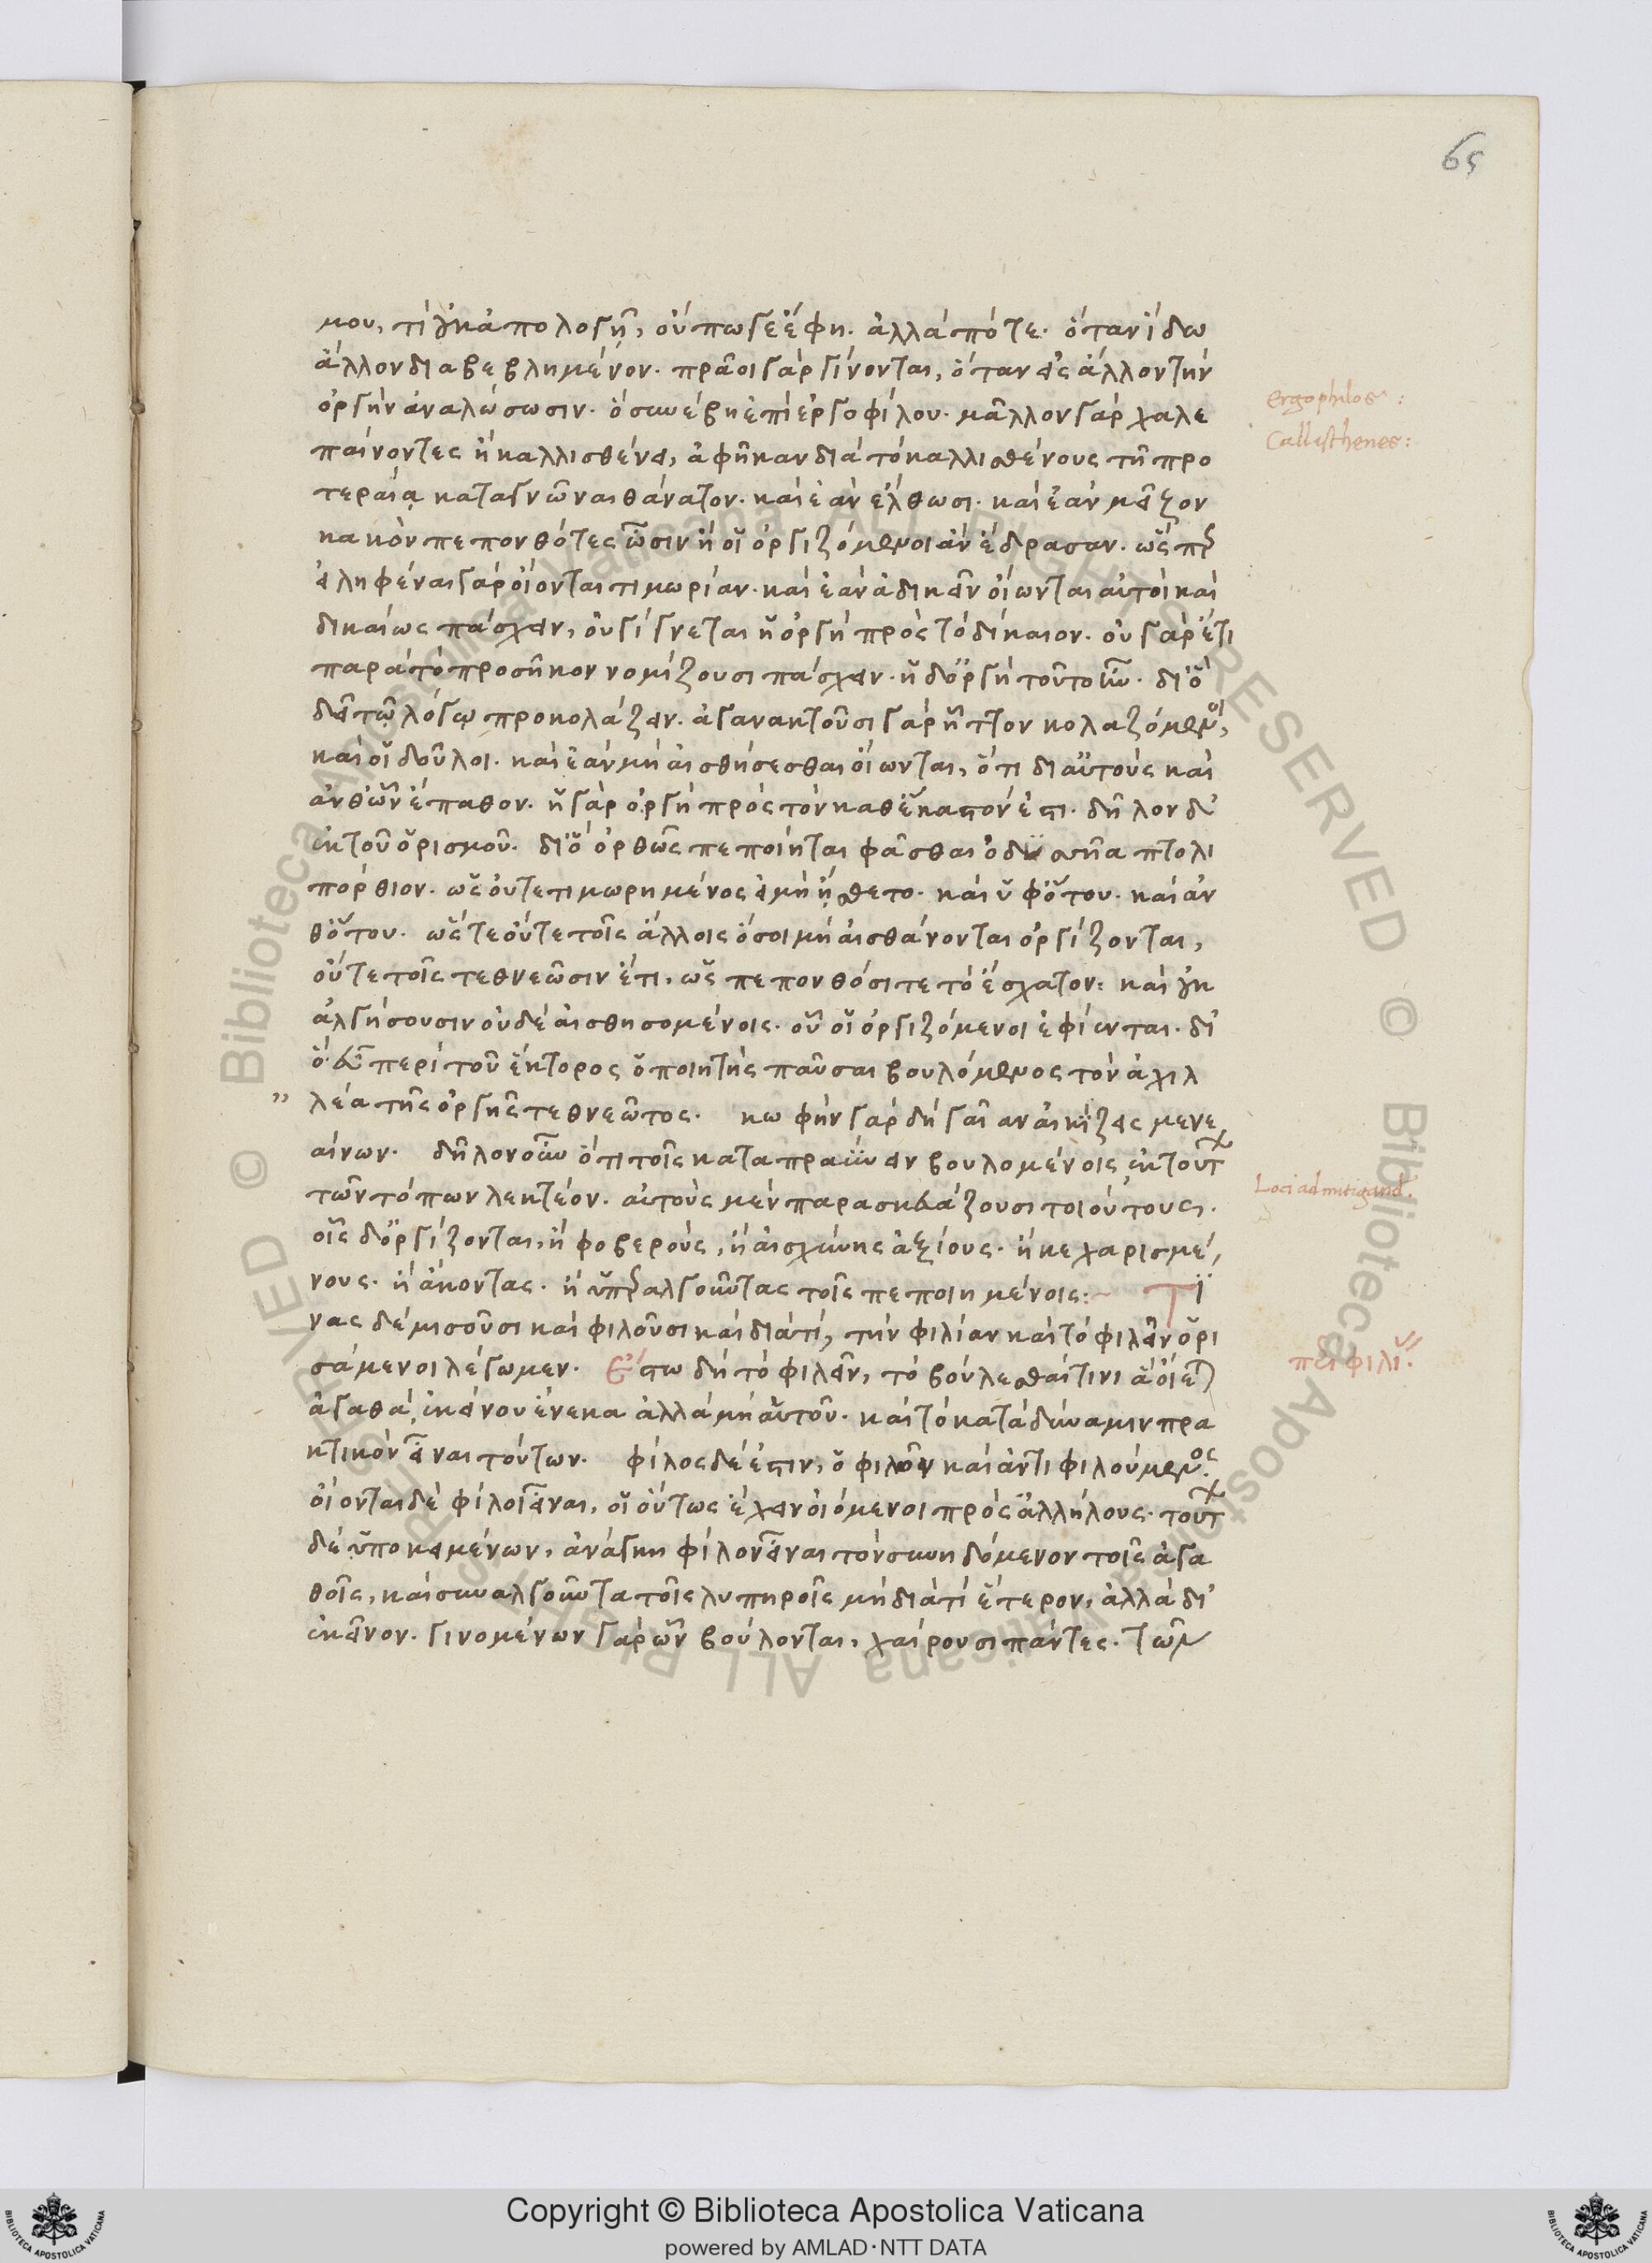 65
μου, τί οὐκ ἀπολογῇ, οὔπω γε ἔφη. ἀλλὰ πότε. ὅταν ἴδω
ἄλλον διαβεβλημένον. πρᾶοι γὰρ γίνονται, ὅταν εἰς ἄλλον τὴν
ὀργὴν ἀναλώσωσιν. ὃ συνέβη ἐπὶ ἐργοφίλου. μᾶλλον γὰρ χαλε
παίνοντες ἢ καλλισθένει, ἀφῆκαν διὰ τὸ καλλισθένους τῇ προ
τεραίᾳ καταγνῶναι θάνατον. καὶ ἐὰν ἕλθωσι. καὶ ἐὰν μεῖζον
κακὸν πεπονθότες ὦσιν ἢ οἱ ὀργιζόμενοι ἂν ἔδρασαν. ὥσπερ
εἰληφέναι γὰρ οἴονται τιμωρίαν. καὶ ἐὰν ἀδικεῖν οἴωνται αὐτοὶ καὶ
δικαίως πάσχειν, οὐ γίγνεται ἡ ὀργὴ πρὸς τὸ δίκαιον. οὐ γὰρ ἔτι
παρὰ τὸ προσῆκον νομίζουσι πάσχειν. ἡ δ' ὀργὴ τοῦτο ἦν. διὸ
δεῖ τῷ λόγῳ προκολάζειν. ἀγανακτοῦσι γὰρ ἧττον κολαζόμενοι,
καὶ οἱ δοῦλοι. καὶ ἐὰν μὴ αἰσθήσεσθαι οἴωνται, ὅτι δι' αὑτοὺς καὶ
ἀνθ' ὧν ἔπαθον. ἡ γὰρ ὀργὴ πρὸς τὸν καθ' ἕκαστόν ἐστι. δῆλον δ'
ἐκ τοῦ ὁρισμοῦ. διὸ ὀρθῶς πεποίηται φᾶσθαι ὀδυσσῆα πτολι
πόρθιον. ὡς οὔτε τιμωρημένος εἰ μὴ ᾔσθετο. καὶ ὑφ' ὅτου. καὶ ἀν
θ' ὅτου. ὥστε οὔτε τοῖς ἄλλοις ὅσοι μὴ αἰσθάνονται ὀργίζονται,
οὔτε τοῖς τεθνεῶσιν ἔτι, ὡς πεπονθόσι τε τὸ ἔσχατον: καὶ οὐκ
ἀλγήσουσιν οὐδὲ αἰσθησομένοις. οὗ οἱ ὀργιζόμενοι ἐφίενται. δι
ὸ εὖ περὶ τοῦ ἕκτορος ὁ ποιητὴς παῦσαι βουλόμενος τὸν ἀχιλ
" λέα τῆς ὀργῆς τεθνεῶτος. κωφὴν γὰρ δὴ γαῖαν ἀεικίζεις μενε
αίνων. δῆλον οὖν ὅτι τοῖς καταπραΰνειν βουλομένοις ἐκ τούτων
τῶν τόπων λεκτέον. αὐτοὺς μὲν παρασκευάζουσι τοιούτους.
οἷς δ' ὀργίζονται, ἢ φοβεροὺς, ἢ αἰσχύνης ἀξίους. ἢ κεχαρισμέ,
νους. ἢ ἄκοντας. ἢ ὑπεραλγοῦντας τοῖς πεποιημένοις:~ Τί
νας δὲ μισοῦσι καὶ φιλοῦσι καὶ διὰ τί, τὴν φιλίαν καὶ τὸ φιλεῖν ὁρι
σάμενοι λέγωμεν. Ἔστω δὴ τὸ φιλεῖν, τὸ βούλεσθαί τινι ἃ οἴεται
ἀγαθὰ, ἐκείνου ἕνεκα ἀλλὰ μὴ αὑτοῦ. καὶ τὸ κατὰ δύναμιν πρα
κτικὸν εἶναι τούτων. φίλος δέ ἐστιν, ὁ φιλῶν καὶ ἀντιφιλούμενος.
οἴονται δὲ φίλοι εἶναι, οἱ οὕτως ἔχειν οἰόμενοι πρὸς ἀλλήλους. τούτων
δὲ ὑποκειμένων, ἀνάγκη φίλον εἶναι τὸν συνηδόμενον τοῖς ἀγα
θοῖς, καὶ συναλγοῦντα τοῖς λυπηροῖς μὴ διὰ τὶ ἕτερον, ἀλλὰ δι'
ἐκεῖνον. γινομένων γὰρ ὧν βούλονται, χαίρουσι πάντες. τῶν
Ergophilos:
Callisthenes:
Loci ad mitigand.
περὶ φιλί.
Copyright © Biblioteca Apostolica Vaticana
powered by AMLAD·NTT DATA